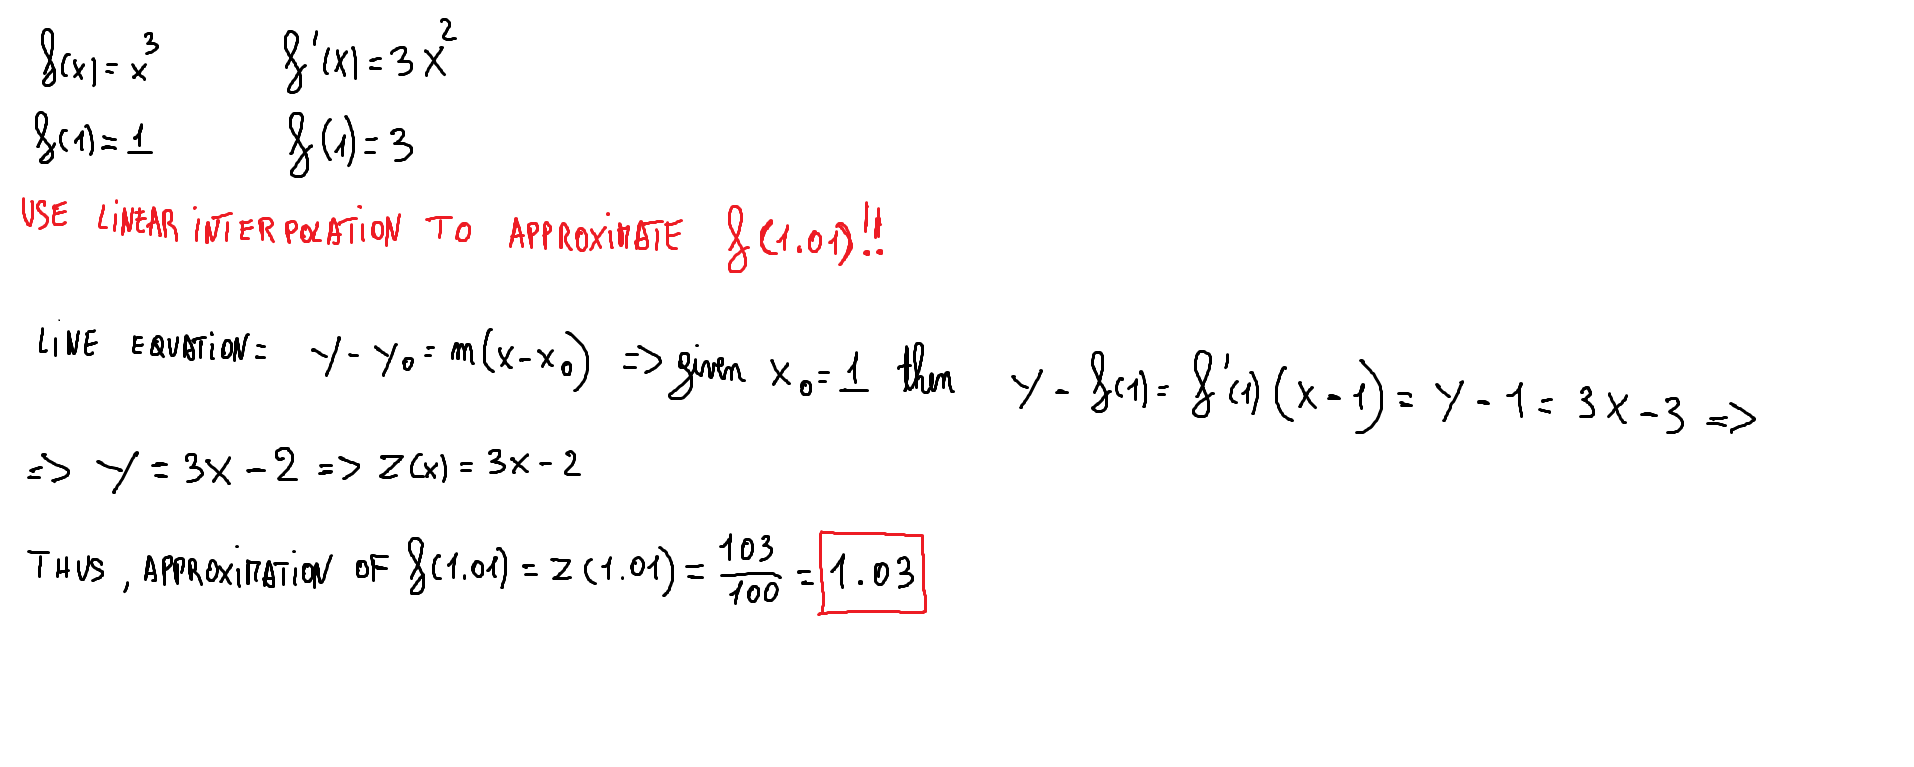 f(x) = x³ f'(x) = 3x²
f(1) = 1 f(1) = 3
USE LINEAR INTERPOLATION TO APPROXIMATE f(1.01)!!
LINE EQUATION = y - y₀ = m(x - x₀) => given x₀ = 1 then y - f(1) = f'(1)(x - 1) = y - 1 = 3x - 3 =>
=> y = 3x - 2 => z(x) = 3x - 2
THUS, APPROXIMATION OF f(1.01) = z(1.01) = 103/100 = 1.03